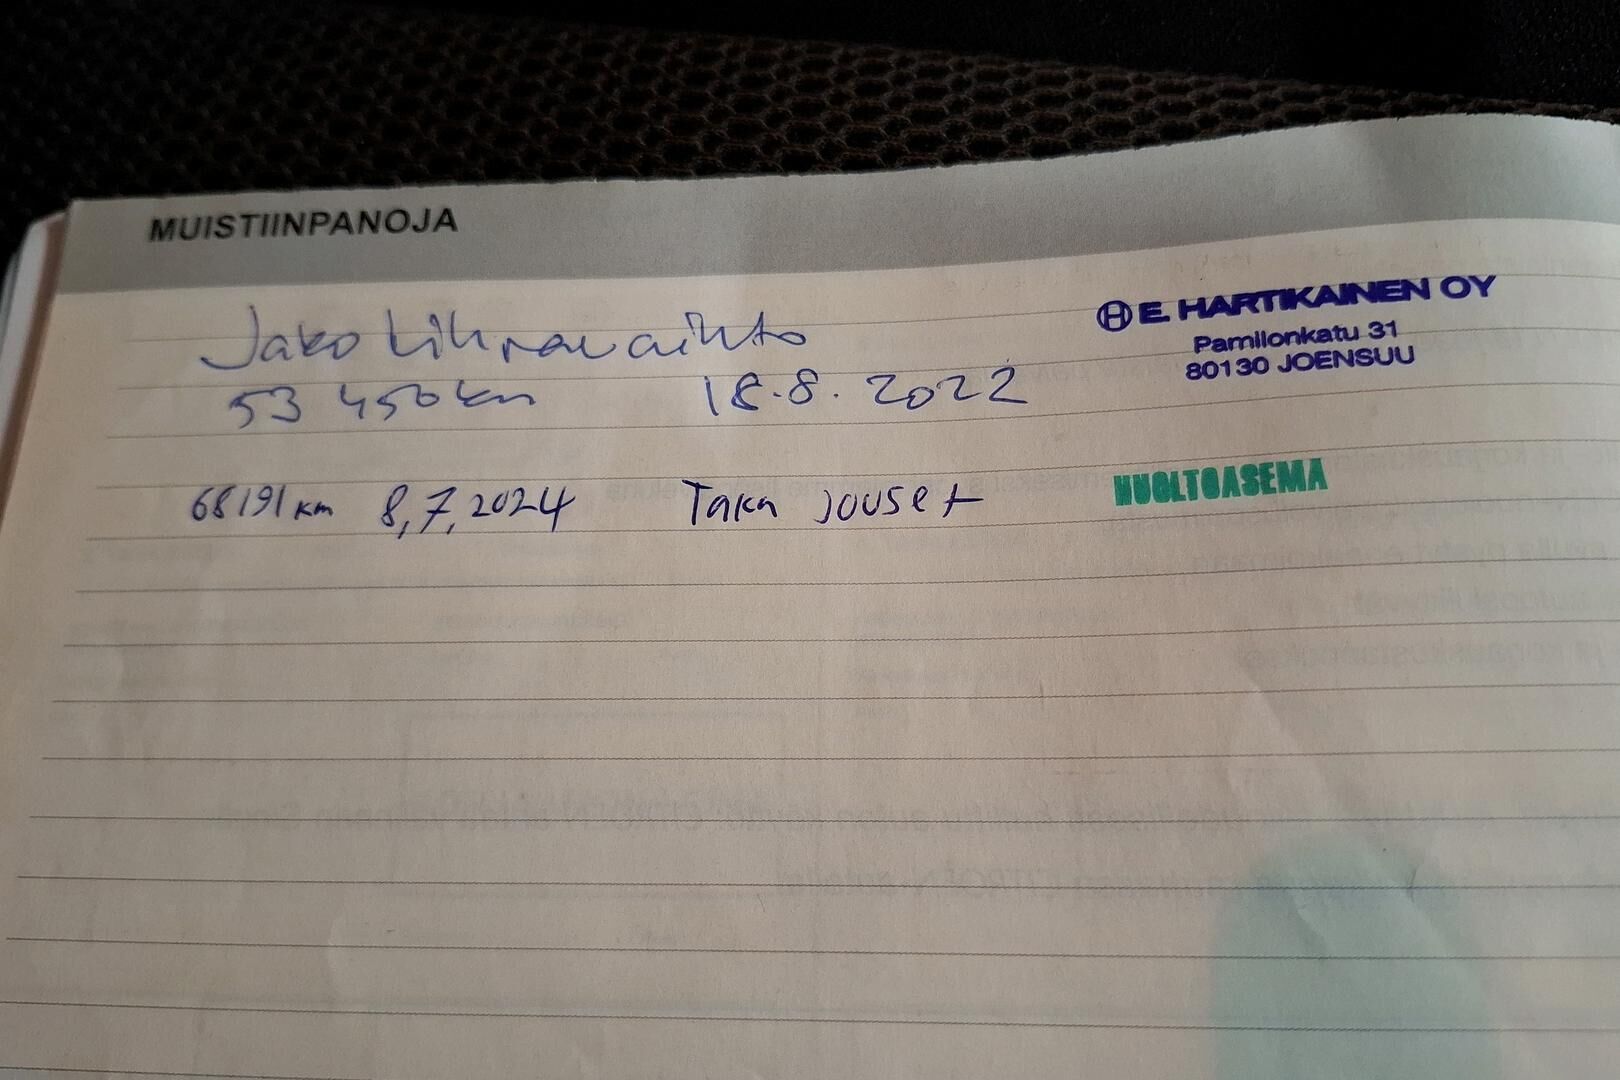 MUISTIINPANOJA
Jakohihnavaihto
E. HARTIKAINEN OY
Pamilonkatu 31
80130 JOENSUU
53 450 km 18.8.2022
68191 km 8,7,2024 Taka jouset HUOLTOASEMA